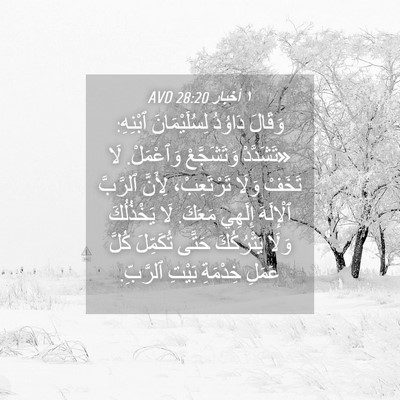 ١ أخبار 28:20 AVD
وَقَالَ دَاوُدُ لِسُلَيْمَانَ ٱبْنِهِ:
«تَشَدَّدْ وَتَشَجَّعْ وَٱعْمَلْ. لَا
تَخَفْ وَلَا تَرْتَعِبْ، لِأَنَّ ٱلرَّبَّ
ٱلْإِلَهَ إِلَهِي مَعَكَ. لَا يَخْذُلُكَ
وَلَا يَتْرُكُكَ حَتَّى تُكَمِّلَ كُلَّ
عَمَلِ خِدْمَةِ بَيْتِ ٱلرَّبِّ.